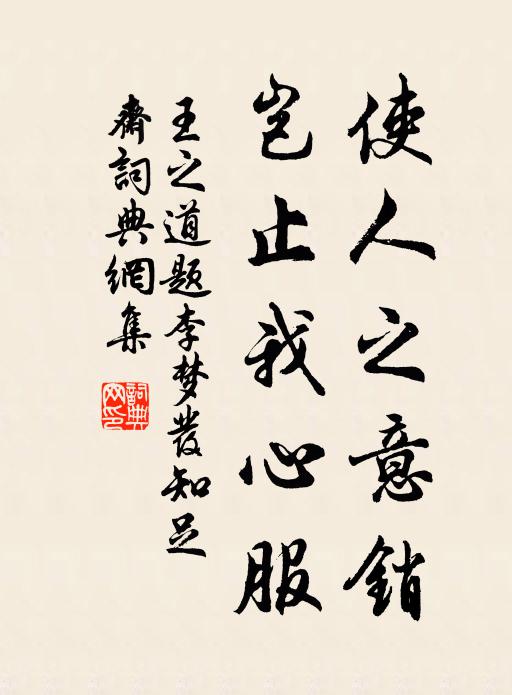 使人之意銷
豈止我心服
王之道题李梦发知足
齋詞典網集
詞典網印